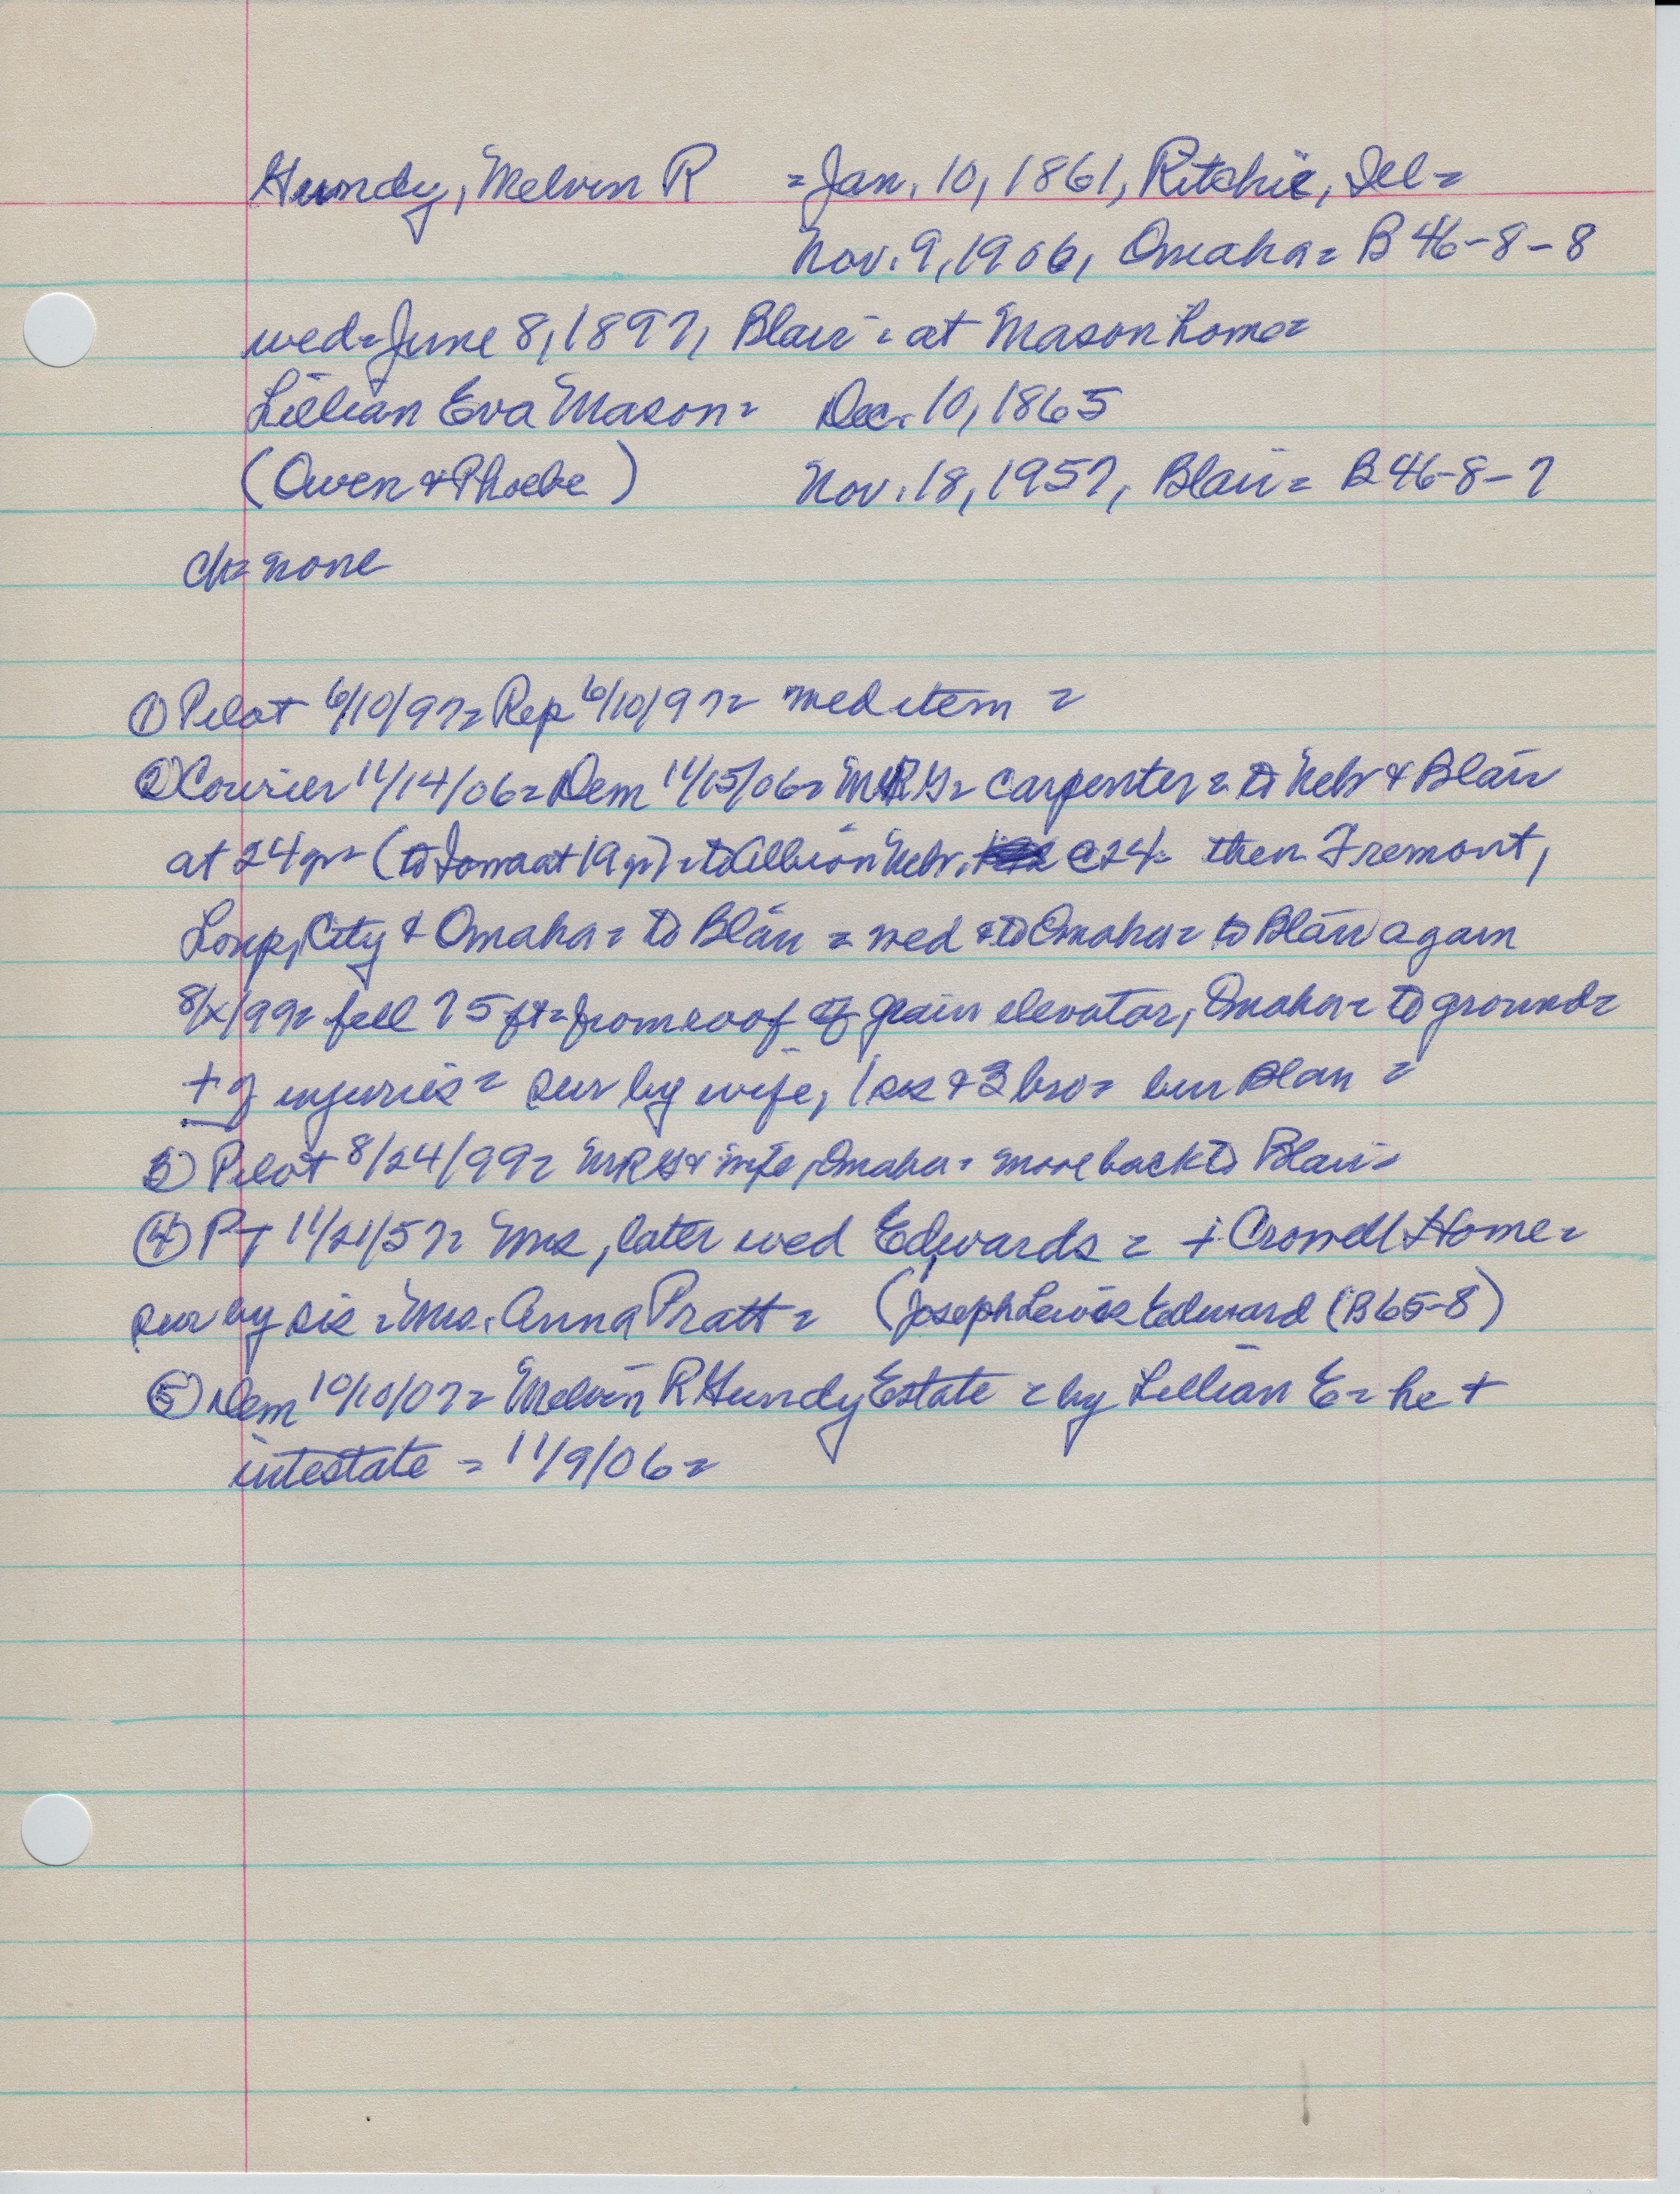 Gundy, Melvin R = Jan. 10, 1861, Ritchie, Ill =
Nov. 9, 1906, Omaha = B 46-8-8
wed = June 8, 1897, Blair = at Mason home =
Lillian Eva Mason = Dec. 10, 1865
(Owen & Phoebe) Nov. 18, 1957, Blair = B 46-8-7
ch = none
① Pilot 6/10/97 = Rep 6/10/97 = wed item =
② Courier 11/14/06 = Dem 11/15/06 = MRG = carpenter = to Nebr & Blair
at 24 yr = (to Iowa at 19 yr) = to Albion Nebr, @24 = then Fremont,
Loup City & Omaha = to Blair = wed & to Omaha = to Blair again
8/x/99 = fell 75 ft = from roof of grain elevator, Omaha = to ground =
+ of injuries = sur by wife, 1 sis & 3 bro = bur Blair =
③ Pilot 8/24/99 = MRG & wife, Omaha = move back to Blair =
④ PT 11/21/57 = Mrs, later wed Edwards = + Crowell Home =
sur by sis = Mrs. Anna Pratt = (Joseph Lewis Edward (B 65-8)
⑤ Dem 10/10/07 = Melvin R Gundy Estate = by Lillian E = he +
intestate = 11/9/06 =